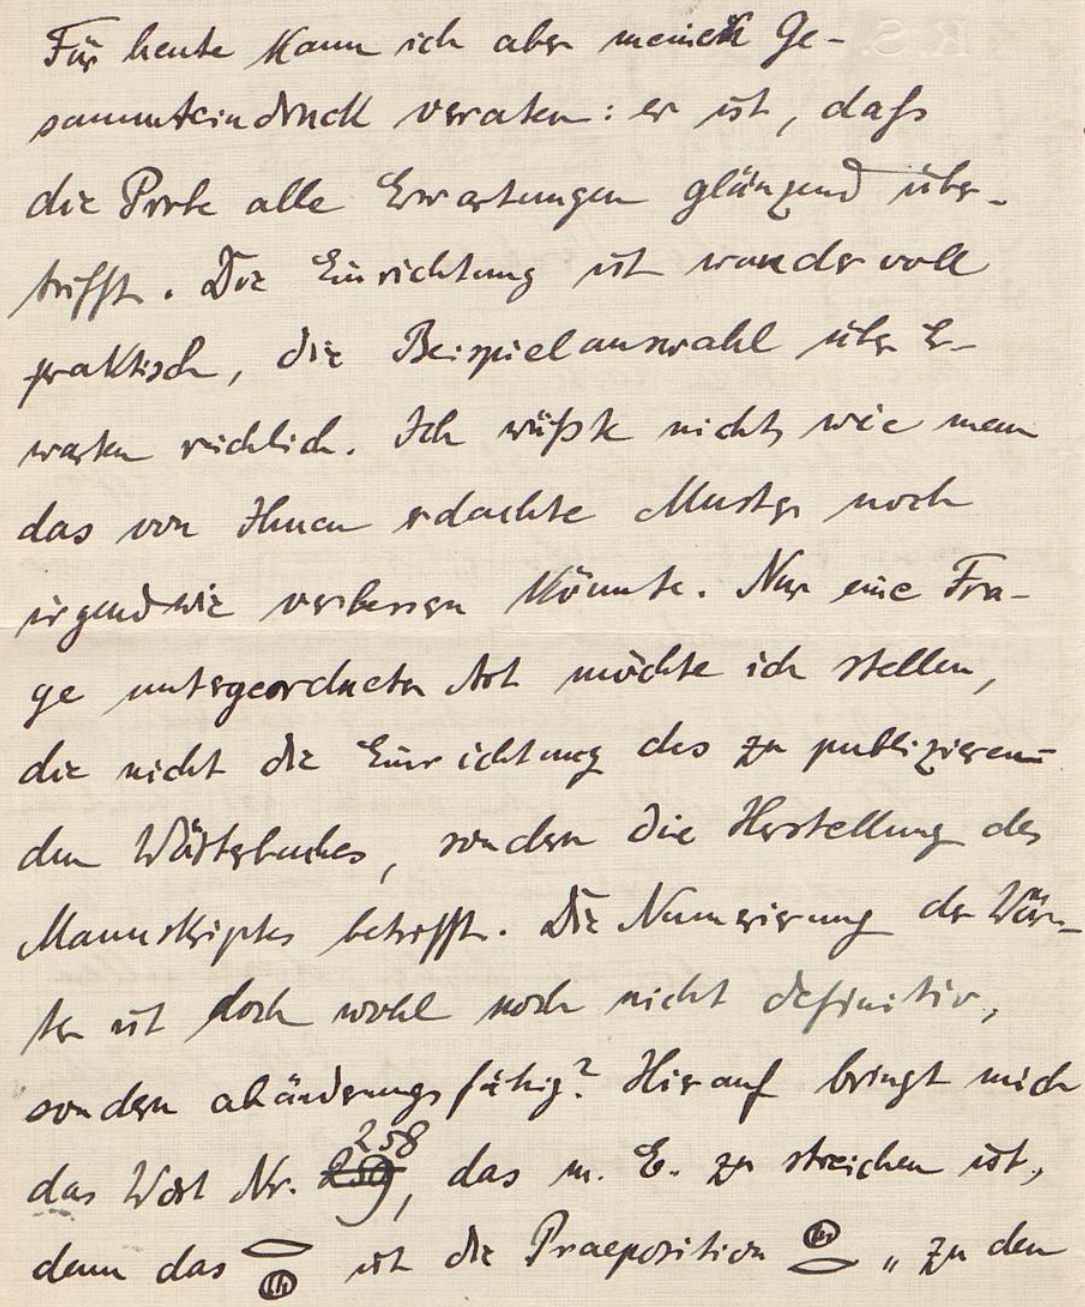 Für heute kann ich aber meinen Ge-
sammteindruck verraten: er ist, daſs
die Probe alle Erwartungen glänzend über-
trifft. Die Einrichtung ist wundervoll
praktisch, die Beispielauswahl über Er-
warten reichlich. Ich wüßte nicht, wie man
das von Ihnen erdachte Muster noch
irgendwie verbessern könnte. Nur eine Fra-
ge untergeordneter Art möchte ich stellen,
die nicht die Einrichtung des zu publizieren-
den Wörterbuches, sondern die Herstellung des
Manuskriptes betrifft. Die Numerierung der Wör-
ter ist doch wohl noch nicht definitiv,
sondern abänderungsfähig? Hierauf bringt mich
das Wort Nr. 258, das m. E. zu streichen ist,
denn das 𓂋𓐍 ist die Praeposition 𓐍𓂋 „zu den